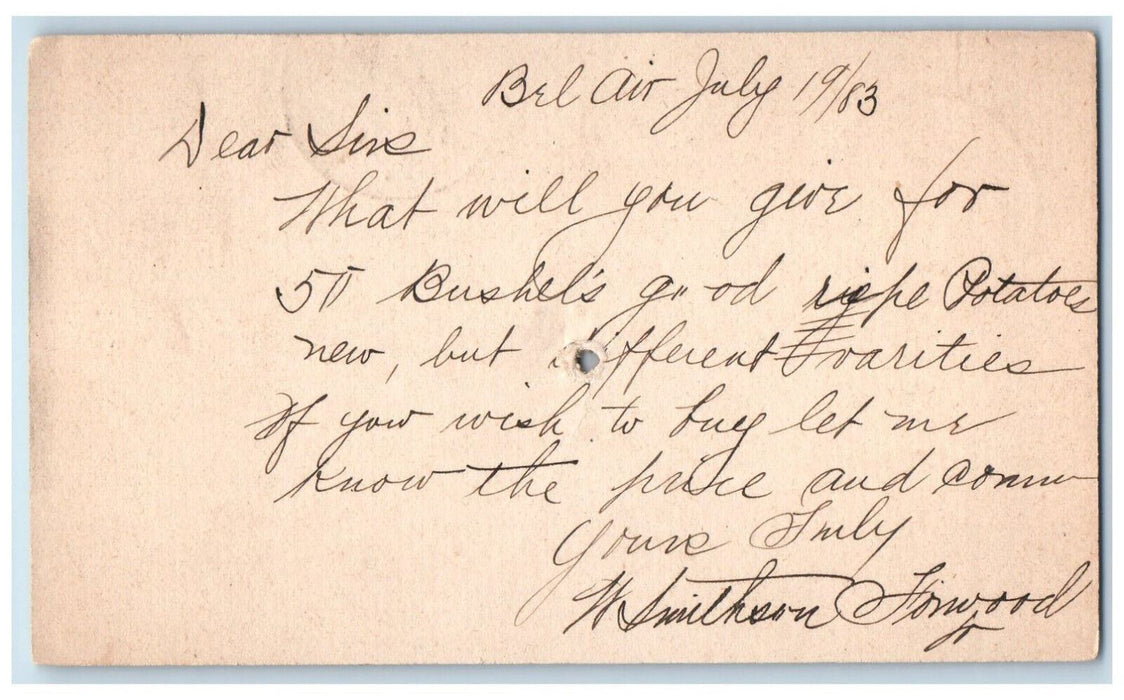 Bel Air July 19/83
Dear Sirs
What will you give for
50 Bushel's good ripe Potatoes
new, but different varities
If you wish to buy let me
know the price and comm
Yours Truly
W Smithson Forwood
Jr